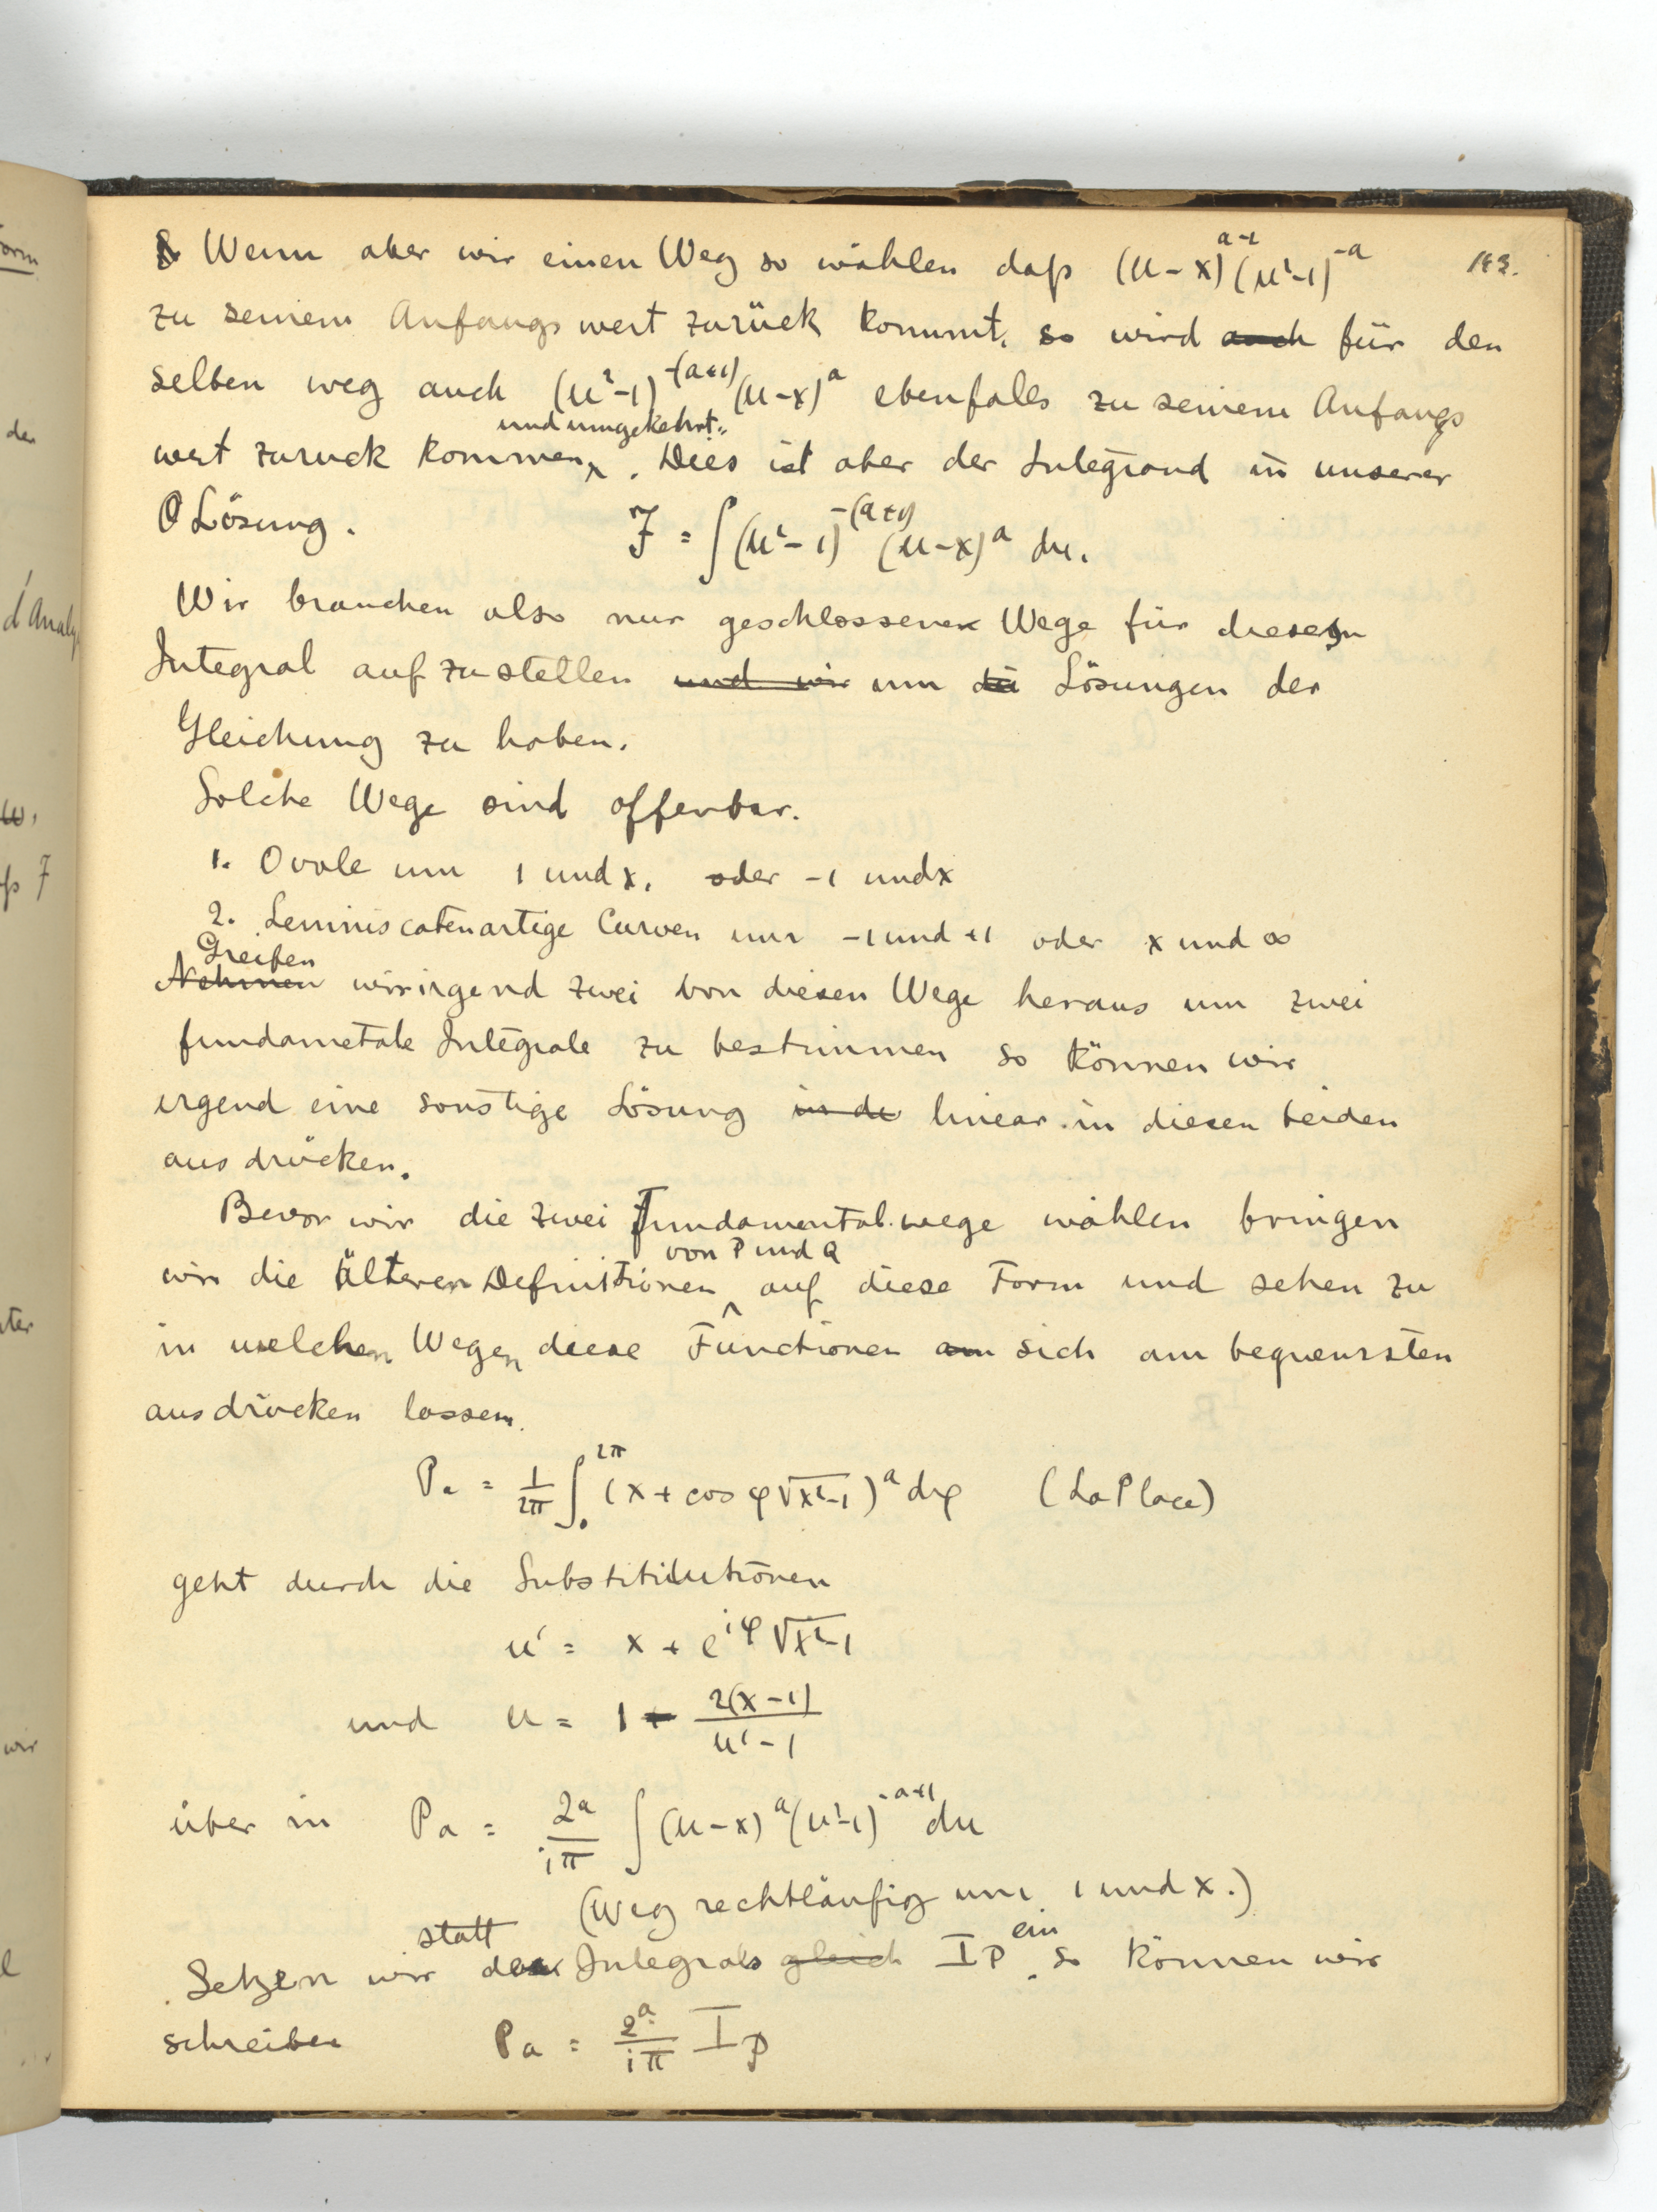 Wenn aber wir einen Weg so wählen daß (u-x)^{a-1}(u²-1)^{-a} 143.
zu seinem Anfangs wert zurück kommt, so wird auch für den
selben weg auch (u²-1)^{-(a+1)}(u-x)^a ebenfalls zu seinem Anfangs
und umgekehrt.
wert zuruck kommen . Dies ist aber der Integrand in unserer
Lösung. J = ∫(u²-1)^{-(a+1)} (u-x)^a du.
Wir brauchen also nur geschlossene Wege für diesen
Integral aufzustellen und wir um die Lösungen der
Gleichung zu haben.
Solche Wege sind offenbar.
1. Ovale um 1 und x, oder -1 und x
2. Leminiscatenartige Curven um -1 und +1 oder x und ∞
Greifen
Nehmen wir irgend zwei von diesen Wege heraus um zwei
fundametale Integrale zu bestimmen so können wir
irgend eine sonstige Lösung in de linear in diesen beiden
aus drücken.
Bevor wir die zwei Fundamental wege wählen bringen
von P und Q
wir die älteren Definitionen auf diese Form und sehen zu
in welchen Wegen diese Functionen am sich am bequemsten
ausdrücken lassen.
P_a = 1/2π ∫_0^{2π} (x + cos φ √x²-1)^a dφ (LaPlace)
geht durch die Substititutionen
u' = x + e^{iφ} √x²-1
und u = 1 + 2(x-1)/u'-1
über in P_a = 2^a/iπ ∫(u-x)^a(u²-1)^{-a+1} du
(Weg rechtläufig um 1 und x.)
statt ein
Setzen wir des Integrals gleich I_P so können wir
schreiben P_a = 2^a/iπ I_p